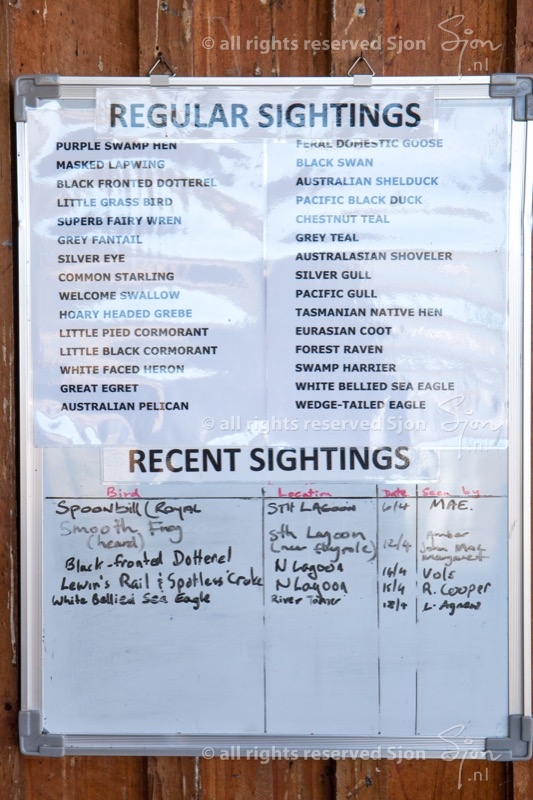 © all rights reserved Sjon Sjon.nl
REGULAR SIGHTINGS
PURPLE SWAMP HEN
MASKED LAPWING
BLACK FRONTED DOTTEREL
LITTLE GRASS BIRD
SUPERB FAIRY WREN
GREY FANTAIL
SILVER EYE
COMMON STARLING
WELCOME SWALLOW
HOARY HEADED GREBE
LITTLE PIED CORMORANT
LITTLE BLACK CORMORANT
WHITE FACED HERON
GREAT EGRET
AUSTRALIAN PELICAN
FERAL DOMESTIC GOOSE
BLACK SWAN
AUSTRALIAN SHELDUCK
PACIFIC BLACK DUCK
CHESTNUT TEAL
GREY TEAL
AUSTRALASIAN SHOVELER
SILVER GULL
PACIFIC GULL
TASMANIAN NATIVE HEN
EURASIAN COOT
FOREST RAVEN
SWAMP HARRIER
WHITE BELLIED SEA EAGLE
WEDGE-TAILED EAGLE
© all rights reserved Sjon Sjon.nl
RECENT SIGHTINGS
Bird Location Date Seen by
Spoonbill (ROYAL STH LAGOON 6/4 MAE.
Smooth Frog Sth Lagoon Amber
(heard) (near 12/4 John Mac
Margaret
Black-fronted Dotterel N Lagoon 14/4 Vols
Lewin's Rail & Spotless Crake N Lagoon 15/4 R. Cooper
White Bellied Sea Eagle River L. Agnew
© all rights reserved Sjon Sjon.nl